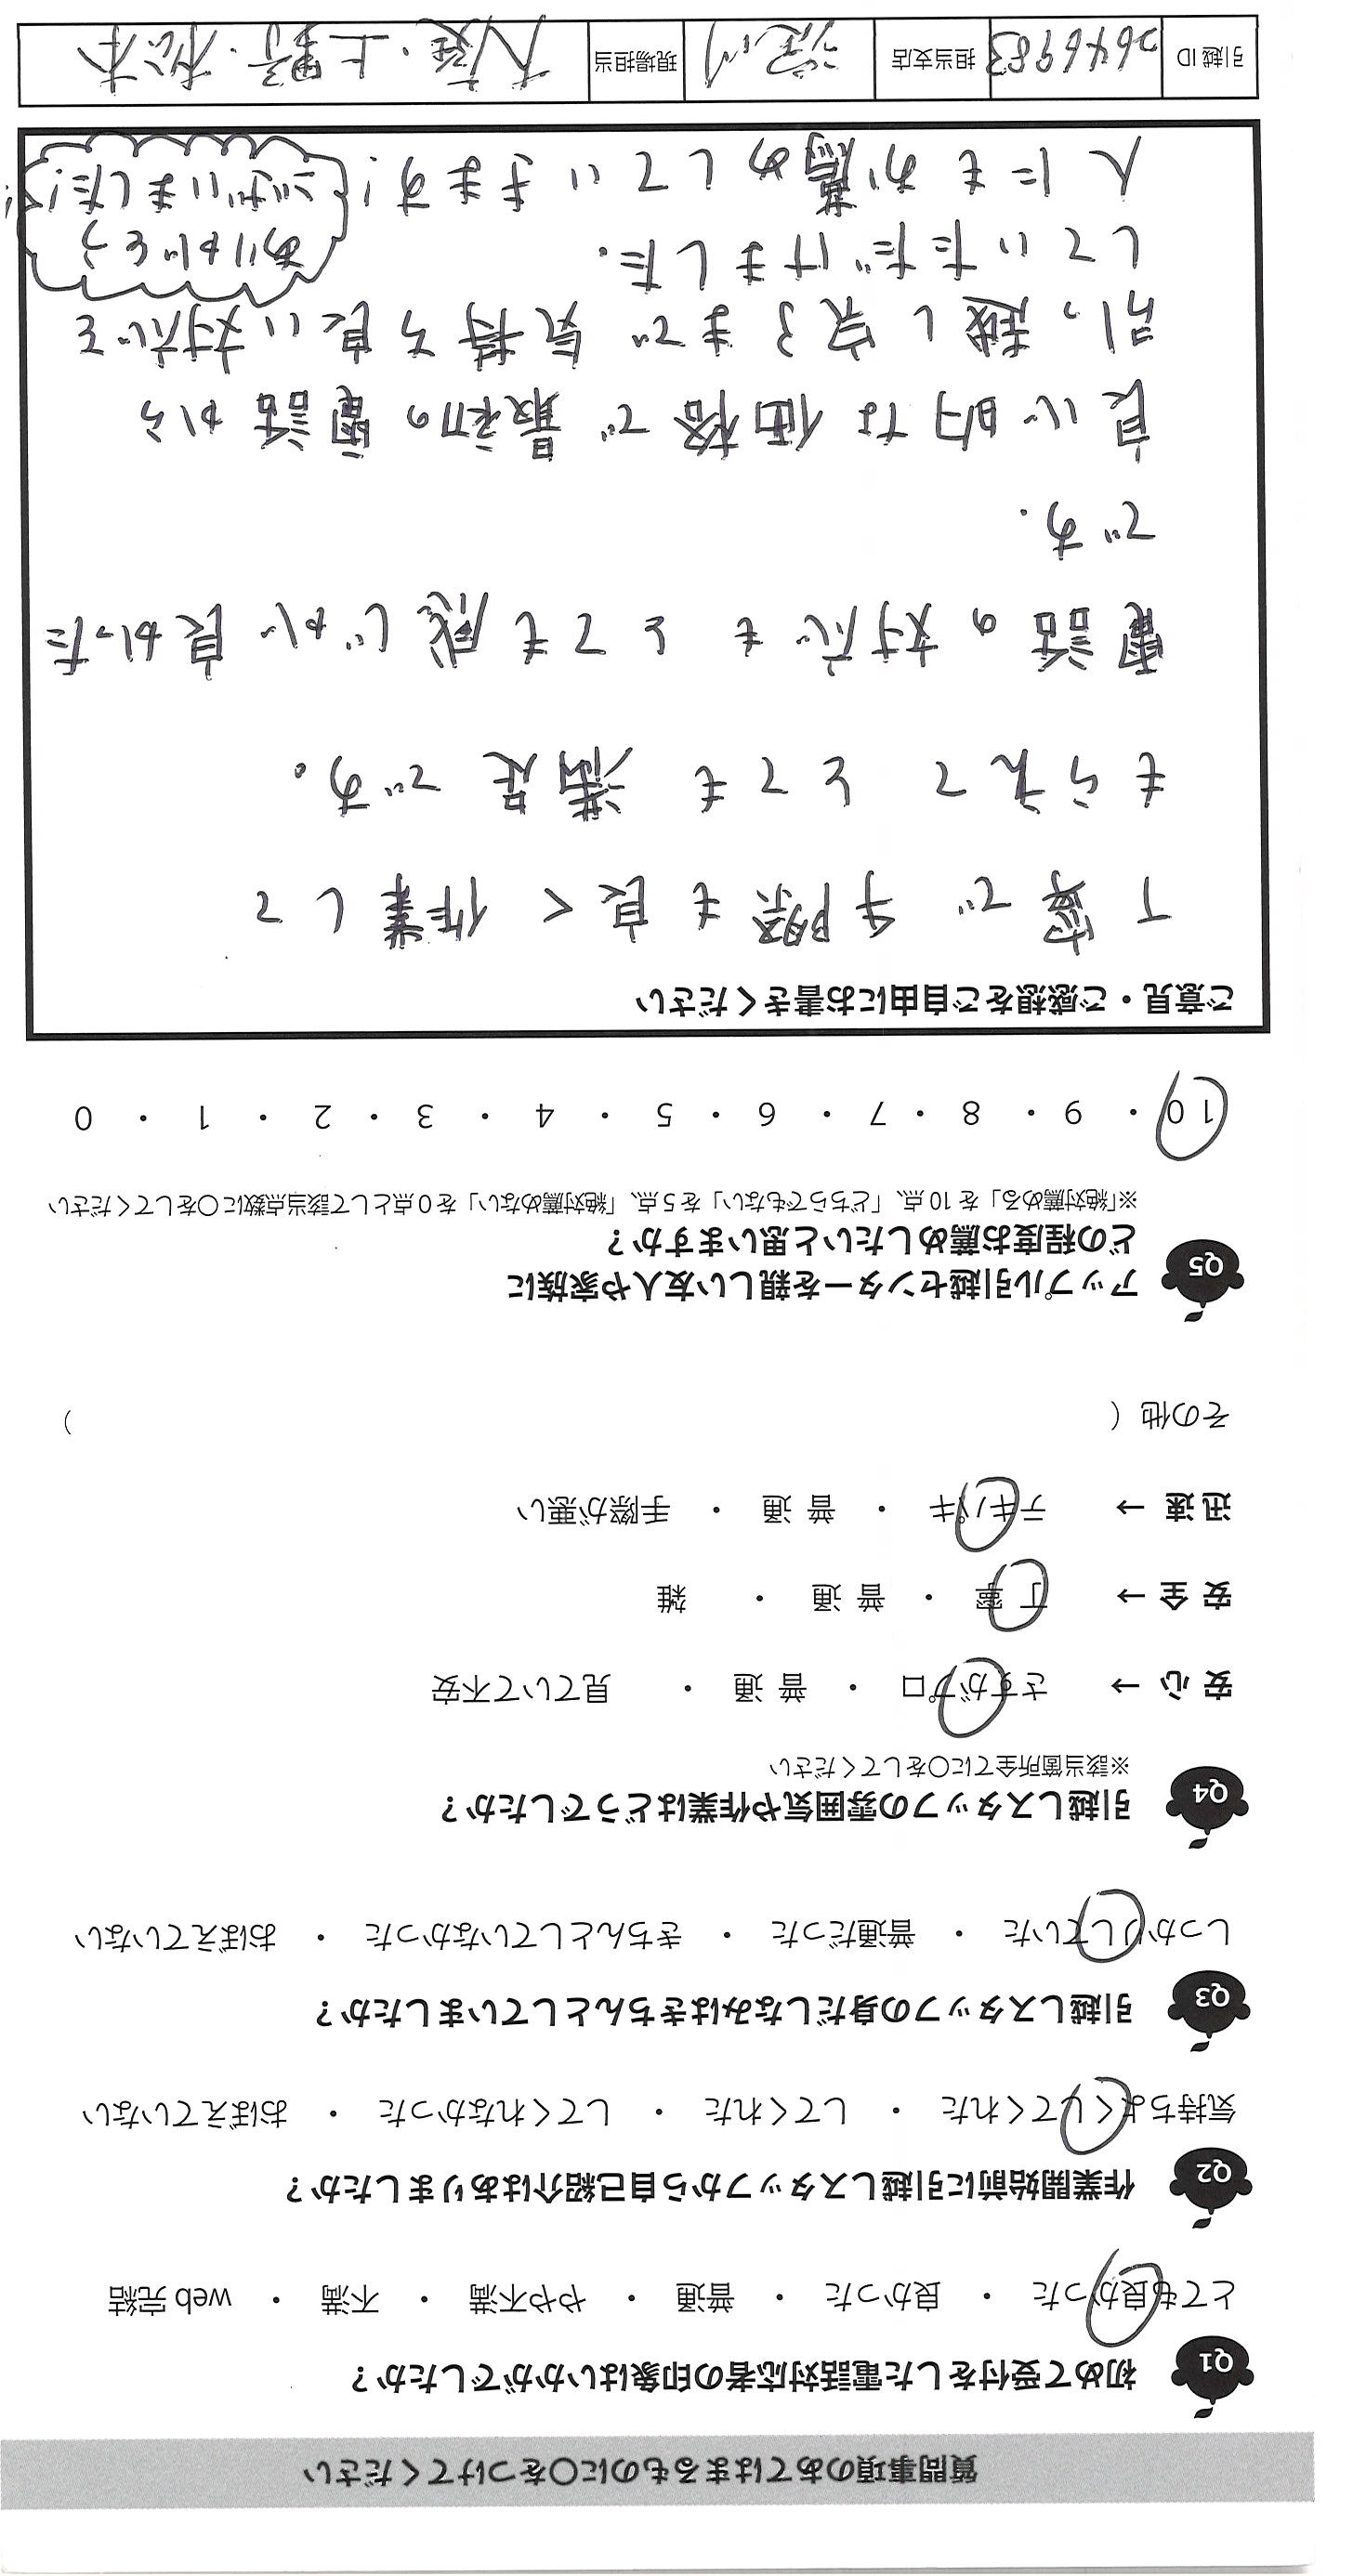 質問事項のあてはまるものに○をつけてください
Q1 初めて受付をした電話対応者の印象はいかがでしたか？
とても良かった ・ 良かった ・ 普通 ・ やや不満 ・ 不満 ・ web 完結
Q2 作業開始前に引越しスタッフから自己紹介はありましたか？
気持ちよくしてくれた ・ してくれた ・ してくれなかった ・ おぼえていない
Q3 引越しスタッフの身だしなみはきちんとしていましたか？
しっかりしていた ・ 普通だった ・ きちんとしていなかった ・ おぼえていない
Q4 引越しスタッフの雰囲気や作業はどうでしたか？
※該当箇所全てに○をしてください
安 心 → さすがプロ ・ 普 通 ・ 見ていて不安
安 全 → 丁 寧 ・ 普 通 ・ 雑
迅 速 → テキパキ ・ 普 通 ・ 手際が悪い
その他（ ）
Q5 アップル引越センターを親しい友人や家族に
どの程度お薦めしたいと思いますか？
※「絶対薦める」を 10 点、「どちらでもない」を 5 点、「絶対薦めない」を 0 点として該当点数に○をしてください
10 ・ 9 ・ 8 ・ 7 ・ 6 ・ 5 ・ 4 ・ 3 ・ 2 ・ 1 ・ 0
ご意見・ご感想をご自由にお書きください
丁寧で手際も良く作業して
もらえてとても満足です。
電話の対応もとても感じが良かった
です.
良心的な価格で最初の電話から
引っ越し完了まで気持ち良い対応を
していただけました.
人にもお薦めしていきます!
ありがとう
ございました!!
引越 ID 2646983 担当支店 現場担当 上野・松本